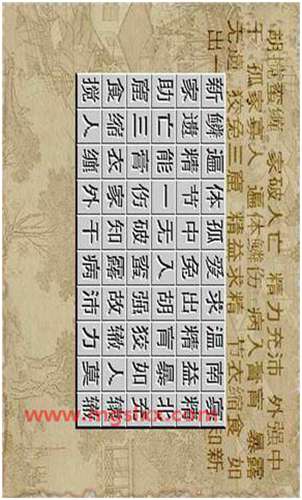 胡搅蛮缠 家破人亡 精力充沛 外强中
干 孤家寡人 遍体鳞伤 病入膏肓 暴露
无遗 狡兔三窟 精益求精 节衣缩食 如
出一 知新
新鳞遍体孤爱求温南寡
家遗精节中兔出精益精
助亡能一无入胡肓暴北
窟三膏伤破蛮强狡如充
食缩衣家知露故辙人辕
搅人缠外干病沛力莫辙